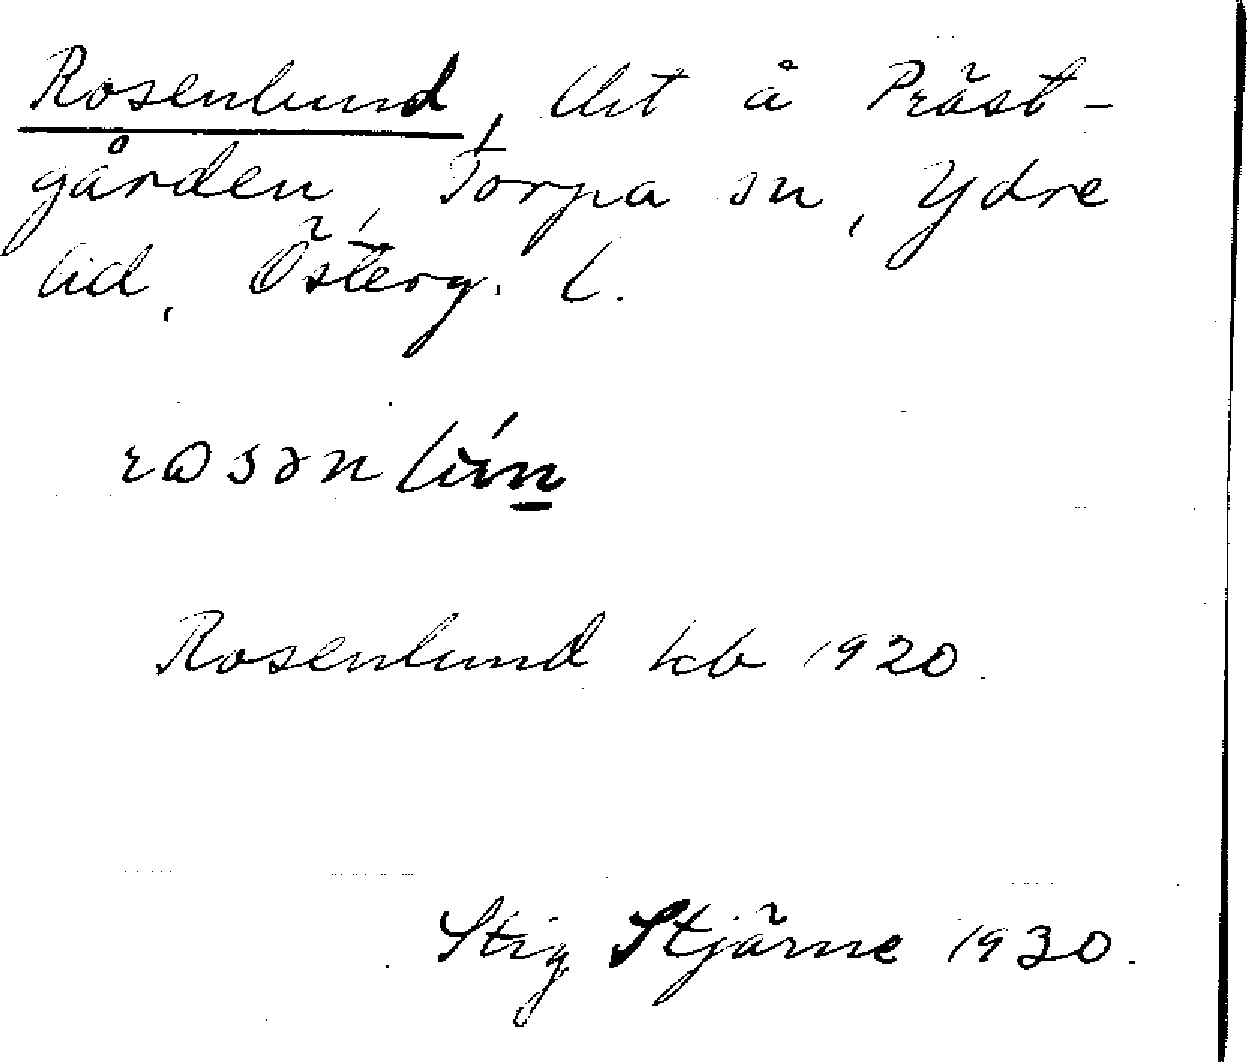 Rosenlund, lht å Präst-
gården, Torpa sn, Ydre
hd, Österg. l.
rosənlún̲
Rosenlund kb 1920.
Stig Stjärne 1930.